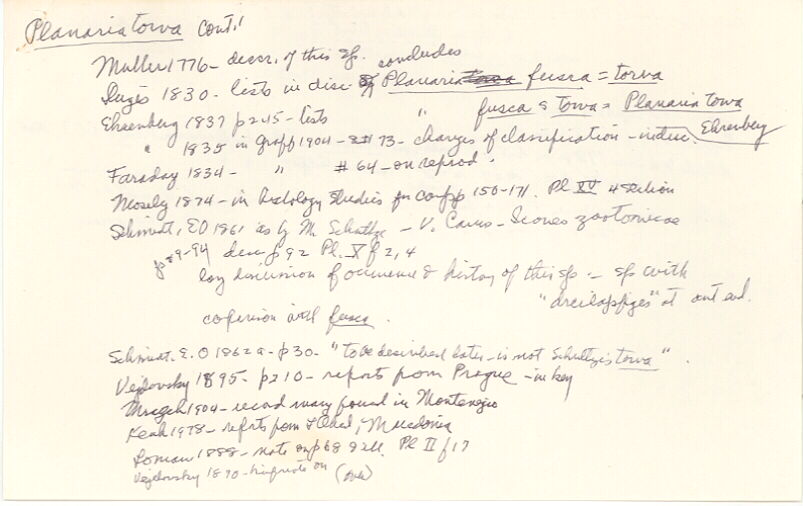 Planaria torva cont.'
Muller 1776 - descr. of this sp. concludes
Dugès 1830 - lists in disc of Planaria fusca = torva
Ehrenberg 1837 p 245 - lists " fusca & torva = Planaria torva
" 1835 in Graff 1904 - # 73 - changes of classification - Ehrenberg
Faraday 1834 - " # 64 - on reprod.
Mosely 1874 - in histology studies for comp pp 150-171. Pl XV 4 section
Schmidt, EO 1861 as by M. Schultze - V. Carus - Icones zootomicae
p 89-94 desc p 92 Pl. X f 2, 4
long discussion of occurrence & history of this sp - sp with
"dreilappiges" at ant end.
comparison with fusca.
Schmidt. E. O 1862a - p 30 - "to be described later - is not Schultze's torva".
Vejdovsky 1895 - p 210 - reports from Prague - in key
Mrazek 1904 - record many found in Montenegro
1978 - reports from L Ohrid, Macedonia
Loman 1888 - note on p 68 Pl II f 17
Vejdovsky 1890 - on (over)